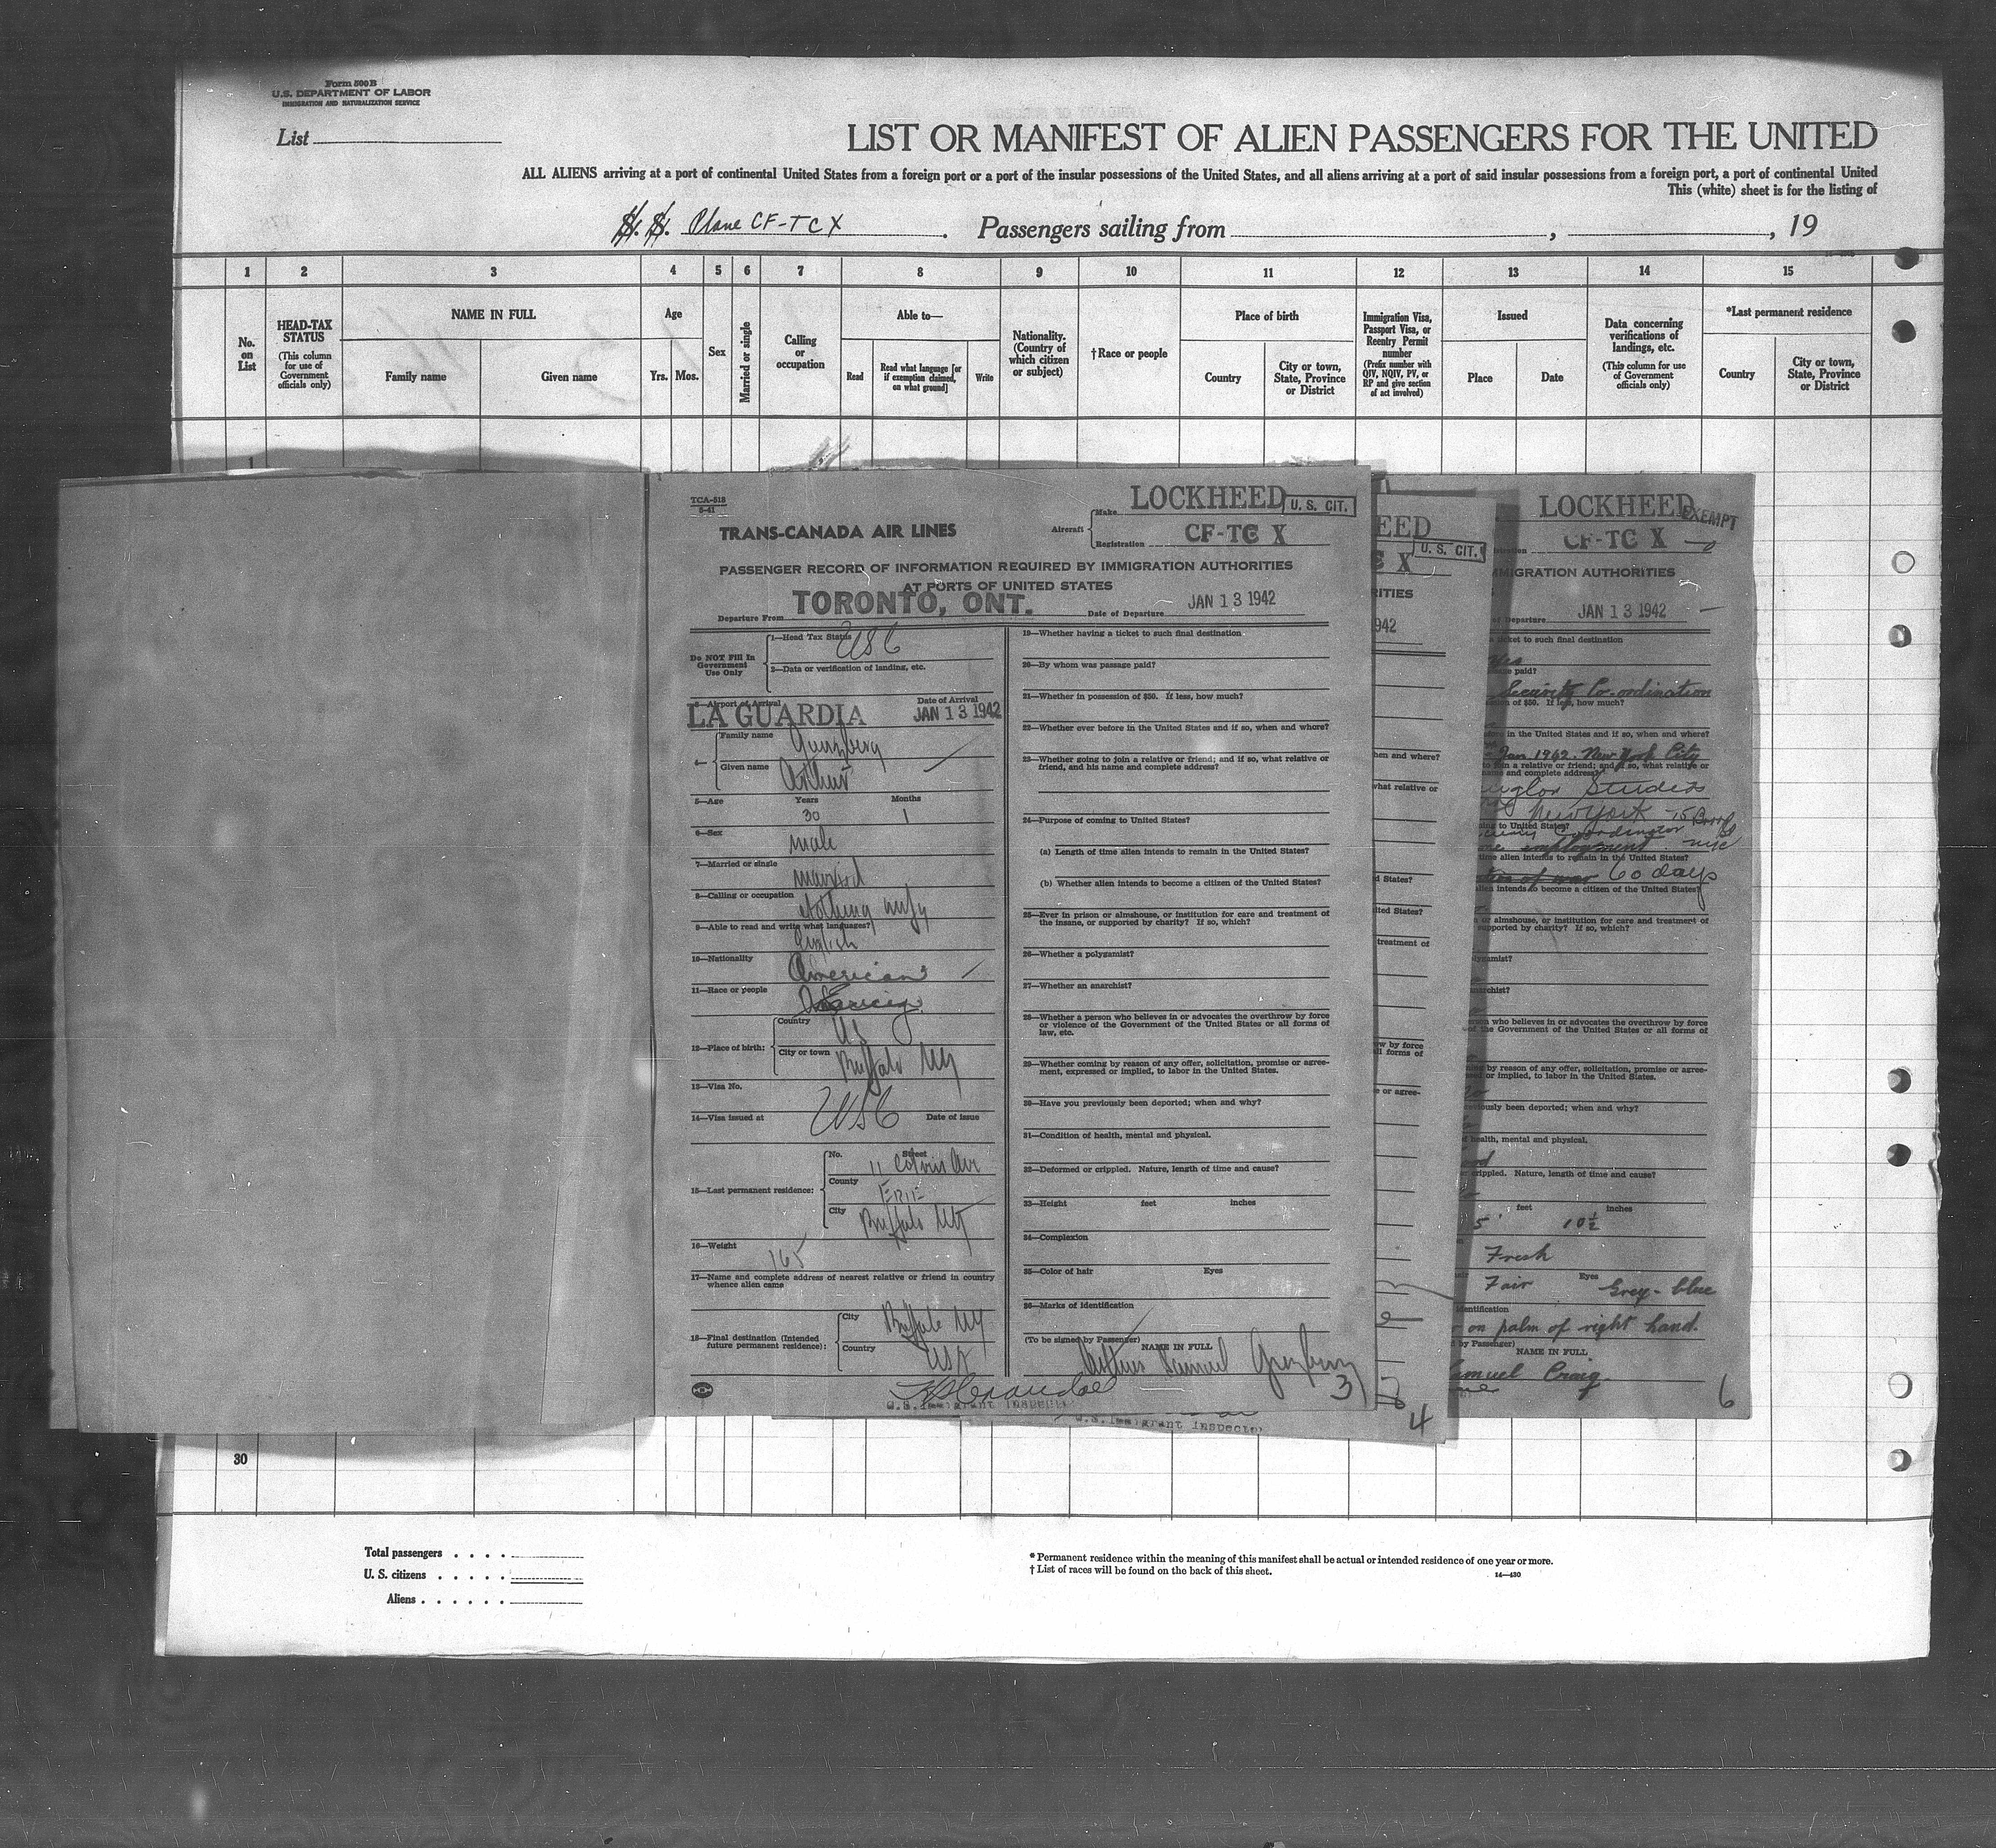 Form 500 B
U.S. DEPARTMENT OF LABOR
IMMIGRATION AND NATURALIZATION SERVICE
List
LIST OR MANIFEST OF ALIEN PASSENGERS FOR THE UNITED
ALL ALIENS arriving at a port of continental United States from a foreign port or a port of the insular possessions of the United States, and all aliens arriving at a port of said insular possessions from a foreign port, a port of continental United
This (white) sheet is for the listing of
S. S. Plane CF-TCX . Passengers sailing from , , 19
1 2 3 4 5 6 7 8 9 10 11 12 13 14 15
No. on List
HEAD-TAX STATUS
(This column for use of Government officials only)
NAME IN FULL
Family name
Given name
Age
Yrs. Mos.
Sex
Married or single
Calling or occupation
Able to—
Read
Read what language [or if exemption claimed, on what ground]
Write
Nationality. (Country of which citizen or subject)
†Race or people
Place of birth
Country
City or town, State, Province or District
Immigration Visa, Passport Visa, or Reentry Permit number
(Prefix number with QIV, NQIV, PV, or RP and give section of act involved)
Issued
Place
Date
Data concerning verifications of landings, etc.
(This column for use of Government officials only)
*Last permanent residence
Country
City or town, State, Province or District
1
TCA-518
5-41
TRANS-CANADA AIR LINES
Aircraft
Make LOCKHEED
U. S. CIT.
Registration CF-TC X
PASSENGER RECORD OF INFORMATION REQUIRED BY IMMIGRATION AUTHORITIES
AT PORTS OF UNITED STATES
Departure From TORONTO, ONT.
Date of Departure JAN 13 1942
Do NOT Fill In Government Use Only
1—Head Tax Status USC
2—Data or verification of landing, etc.
3—Airport of Arrival LA GUARDIA
Date of Arrival JAN 13 1942
4—
Family name
Given name Arthur
5—Age Years 30 Months 1
6—Sex male
7—Married or single married
8—Calling or occupation Clothing mfg
9—Able to read and write what languages? English
10—Nationality American
11—Race or people
12—Place of birth: Country US
City or town Buffalo NY
13—Visa No.
14—Visa issued at USC Date of issue
15—Last permanent residence:
No. Street 11 Colvin Ave
County ERIE
City Buffalo NY
16—Weight 165
17—Name and complete address of nearest relative or friend in country whence alien came
18—Final destination (Intended future permanent residence):
City Buffalo NY
Country USA
19—Whether having a ticket to such final destination
20—By whom was passage paid?
21—Whether in possession of $50. If less, how much?
22—Whether ever before in the United States and if so, when and where?
23—Whether going to join a relative or friend; and if so, what relative or friend, and his name and complete address?
24—Purpose of coming to United States?
(a) Length of time alien intends to remain in the United States?
(b) Whether alien intends to become a citizen of the United States?
25—Ever in prison or almshouse, or institution for care and treatment of the insane, or supported by charity? If so, which?
26—Whether a polygamist?
27—Whether an anarchist?
28—Whether a person who believes in or advocates the overthrow by force or violence of the Government of the United States or all forms of law, etc.
29—Whether coming by reason of any offer, solicitation, promise or agreement, expressed or implied, to labor in the United States.
30—Have you previously been deported; when and why?
31—Condition of health, mental and physical.
32—Deformed or crippled. Nature, length of time and cause?
33—Height feet inches
34—Complexion
35—Color of hair Eyes
36—Marks of identification
(To be signed by Passenger) NAME IN FULL
Arthur Samuel
U.S. Immigrant Inspector
3
EED
U. S. CIT.
X
RITIES
942
hen and where?
what relative or
d States?
ited States?
treatment of
w by force
all forms of
e or agree-
U.S. Immigrant Inspector
4
LOCKHEED
EXEMPT
CF-TC X
MIGRATION AUTHORITIES
Departure JAN 13 1942
ticket to such final destination
Yes
paid?
Security Co-ordination
of $50. If less, how much?
in the United States and if so, when and where?
Jan 1942. New York City
join a relative or friend; and if so, what relative or
name and complete address?
Studios
New York - 15 Broad St
ing to United States? Coordinator
employment. NYC
time alien intends to remain in the United States?
of war 60 days
alien intends to become a citizen of the United States?
or almshouse, or institution for care and treatment of
supported by charity? If so, which?
lygamist?
narchist?
erson who believes in or advocates the overthrow by force
of the Government of the United States or all forms of
ing by reason of any offer, solicitation, promise or agree-
sed or implied, to labor in the United States.
viously been deported; when and why?
health, mental and physical.
crippled. Nature, length of time and cause?
feet inches
5' 10 ½
Fresh
Fair Eyes Grey-blue
dentification
on palm of right hand.
by Passenger) NAME IN FULL
Samuel Craig.
6
30
Total passengers
U. S. citizens
Aliens
* Permanent residence within the meaning of this manifest shall be actual or intended residence of one year or more.
† List of races will be found on the back of this sheet.
14—430